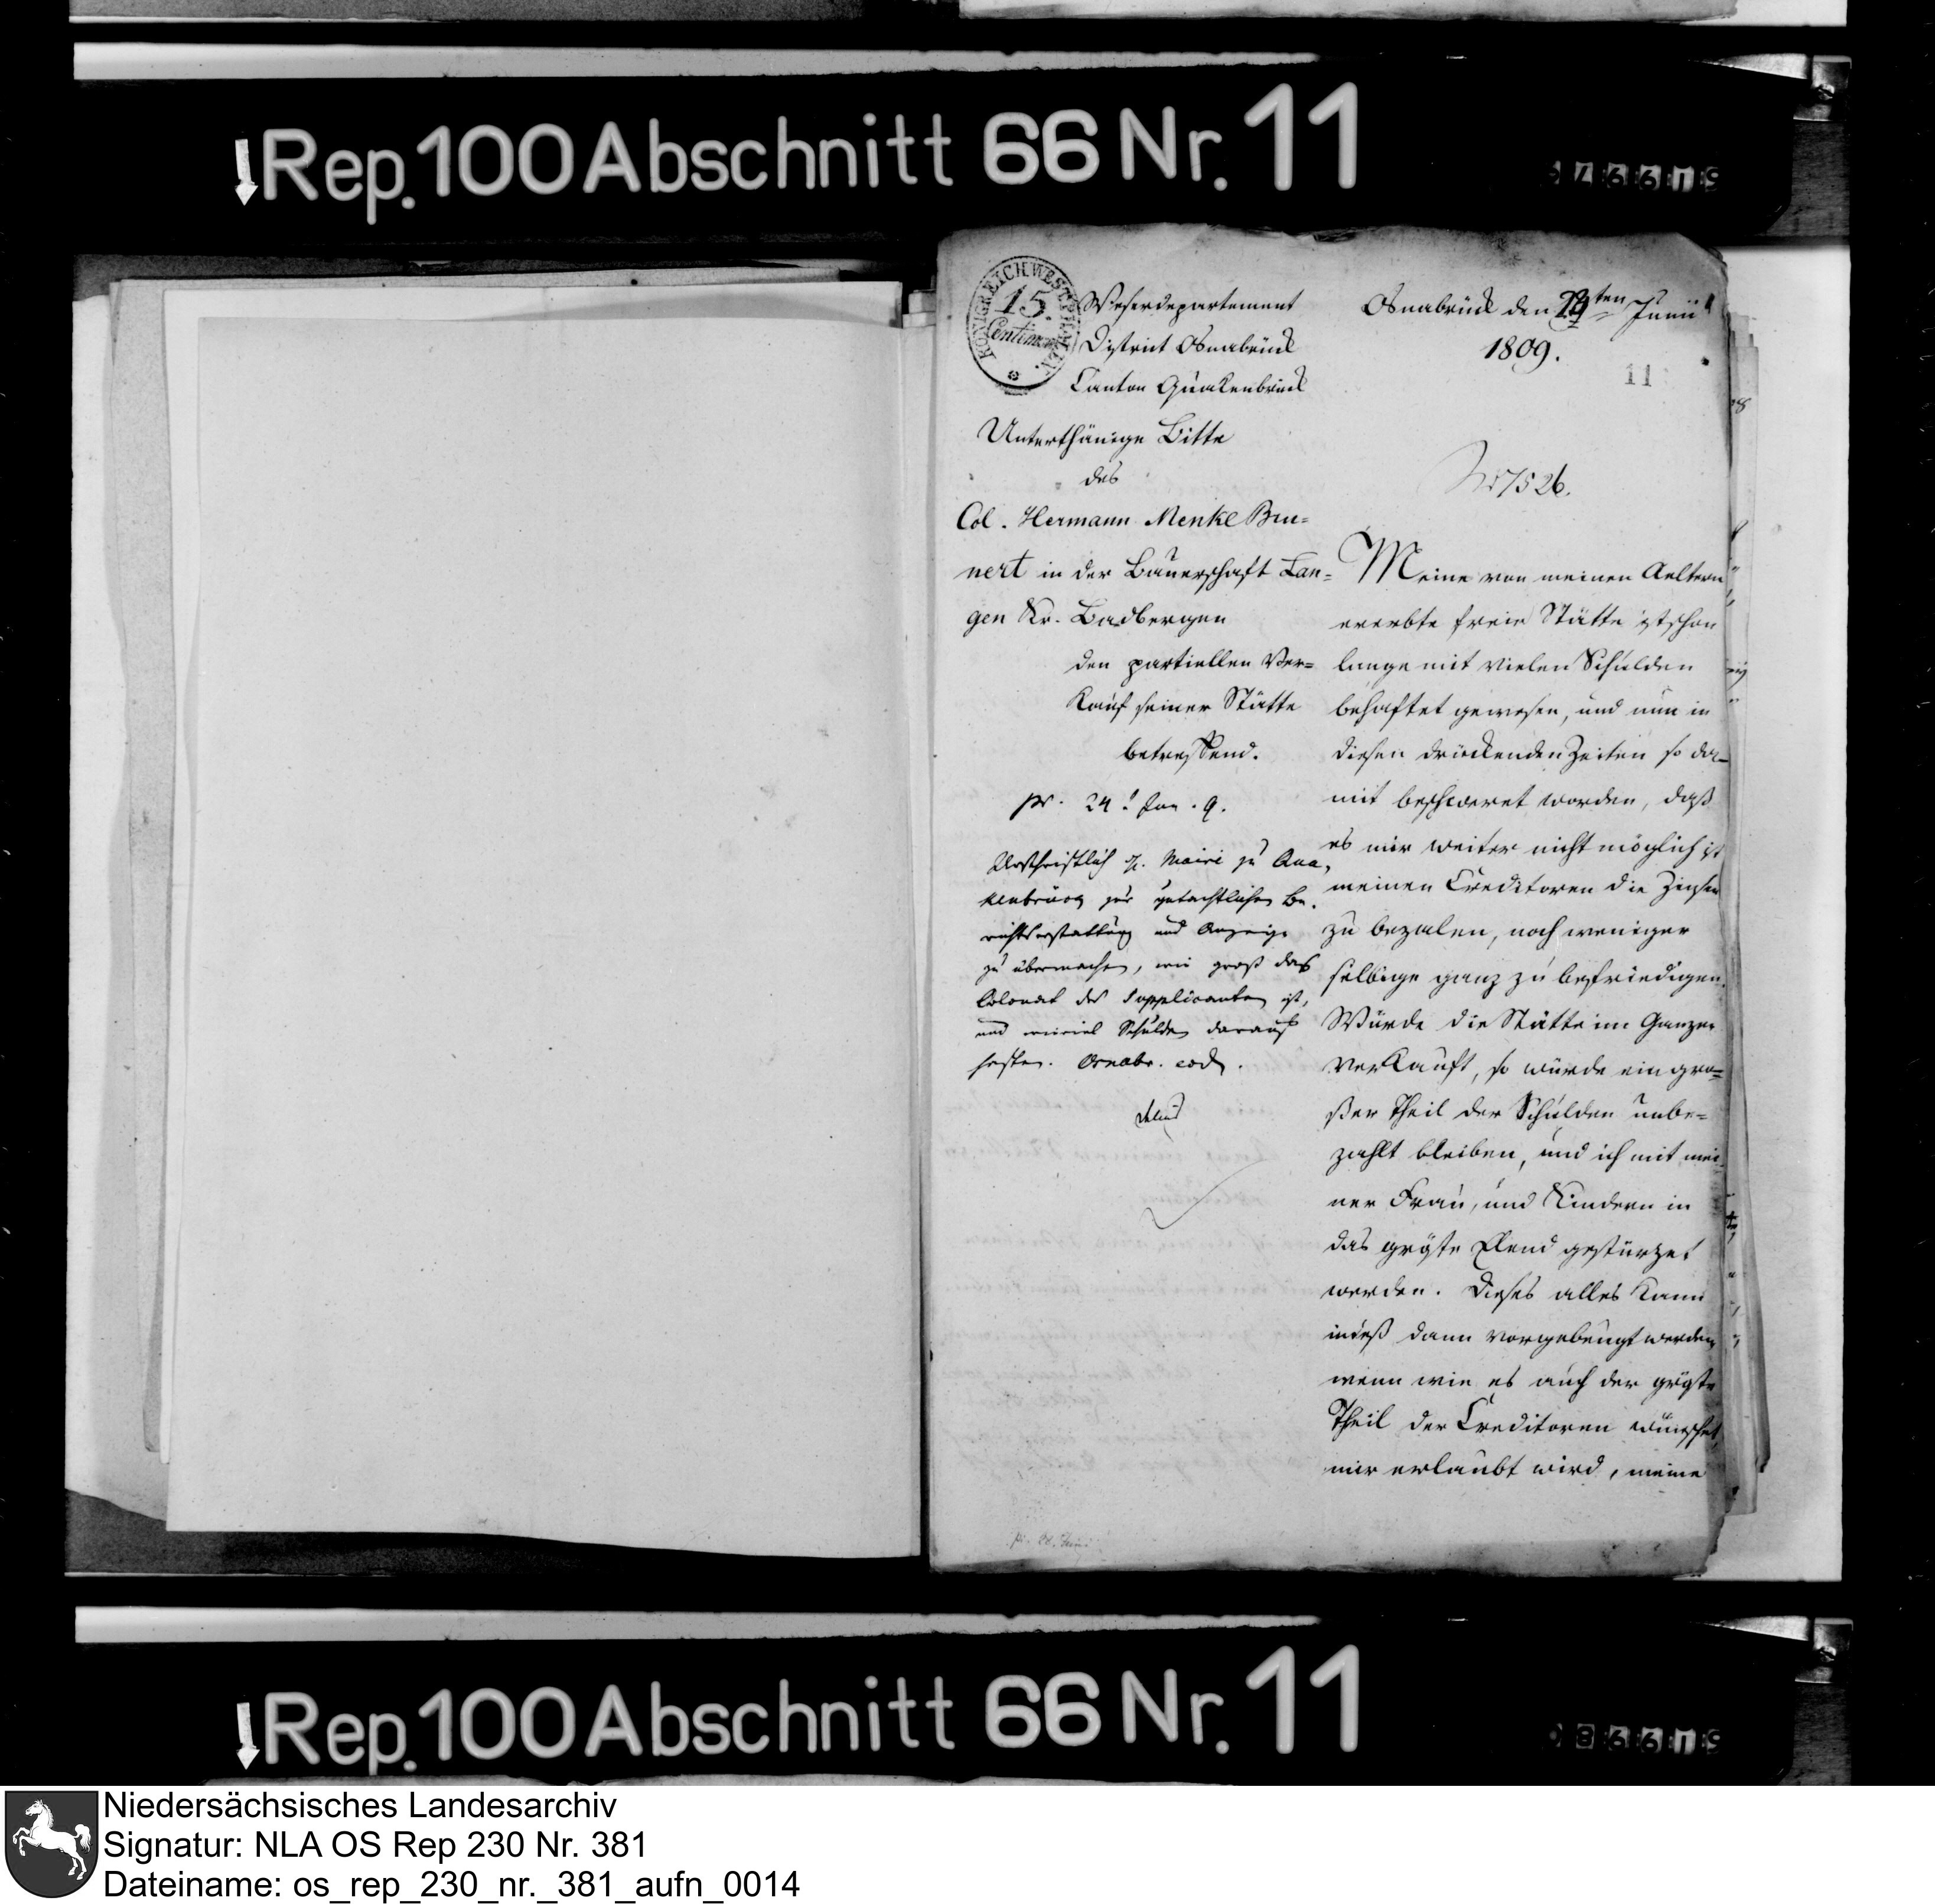 Rep. 100 Abschnitt 66 Nr. 11
KÖNIGREICH WESTPHALEN
15.
Centimen
Weserdepartement
District Osnabrück
Canton Quakenbrück
Unterthänige Bitte
des
Col. Hermann Menke Bru=
nert in der Bauerschaft Lan=
gen Kr. Badbergen
den partiellen Ver=
kauf seiner Stätte
betreffend.
pr. 24. Jun. 9.
Urschriftlich Mairie zu Qua=
kenbrüg zur gutachtlichen Be=
richtserstattung und Anzeige
zu übermachen, wie groß das
Colonat des Supplicanten ist,
und wieviel Schulden darauf
haften. Osnabr. eod.
Delius
Osnabrück den ten Junii
1809.
11
Nr 7526.
Meine von meinen Aeltern
ererbte freie Stätte ist schon
lange mit vielen Schulden
behaftet gewesen, und nun in
diesen drückenden Zeiten so da=
mit beschweret worden, daß
es mir weiter nicht möglich ist
meinen Creditoren die Zinsen
zu bezalen, noch weniger
selbige ganz zu befriedigen.
Würde die Stätte im Ganzen
verkauft, so würde ein gro=
ßer Theil der Schulden unbe=
zahlt bleiben, und ich mit mei
ner Frau, und Kindern in
das gröste Elend gestürzet
werden. Dieses alles kann
indeß dann vorgebeugt werden,
wenn wie es auch der gröste
Theil der Creditoren wünschet,
mir erlaubt wird, meine
Rep. 100 Abschnitt 66 Nr. 11
Niedersächsisches Landesarchiv
Signatur: NLA OS Rep 230 Nr. 381
Dateiname: os_rep_230_nr._381_aufn_0014